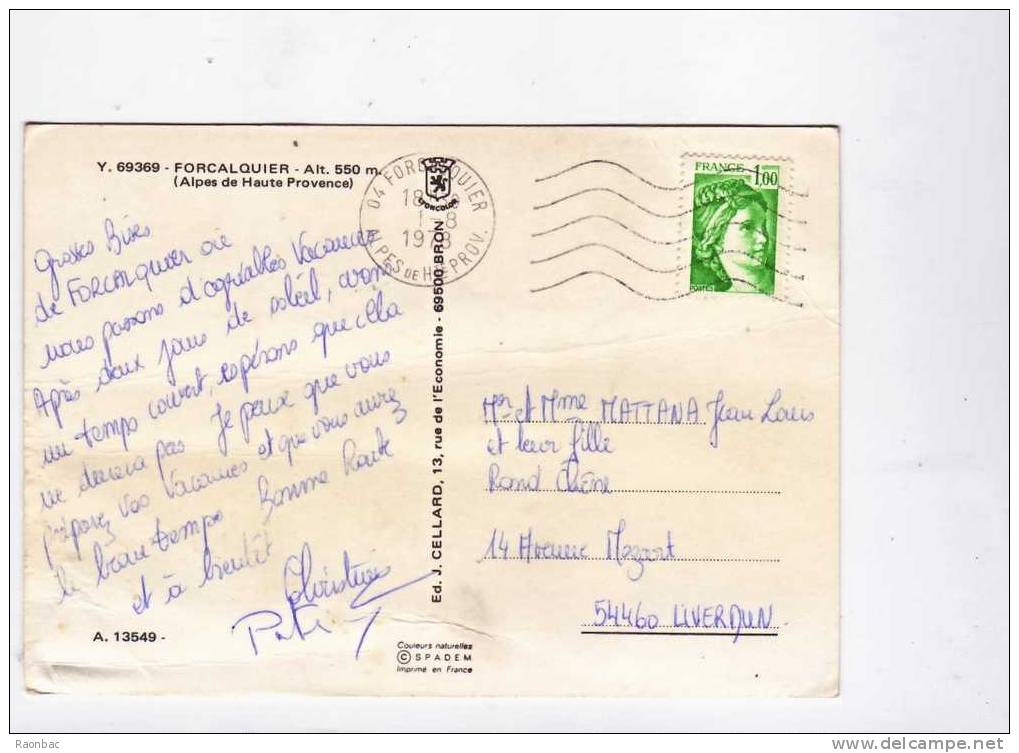 Y. 69369 - FORCALQUIER - Alt. 550 m.
(Alpes de Haute Provence)
04 FORCALQUIER
18
1-8
1978
ALPES DE HTE PROV.
LYONCOLOR
FRANCE 1,00
Grosses Bises
de FORCALQUIER où
nous passons d'agréables Vacances
Après deux jours de soleil, avons
un temps couvert, espérons que cela
ne durera pas Je pense que vous
préparez vos vacances et que vous aurez
le beau temps Bonne Route
et à bientôt
Christine
Ed. J. CELLARD, 13, rue de l'Economie - 69500 BRON
Mr et Mme MATTANA Jean Louis
et leur fille
Rond Chêne
14 Avenue Mozart
54460 LIVERDUN
A. 13549 -
Couleurs naturelles
© SPADEM
Imprimé en France
Raonbac
www.delcampe.net